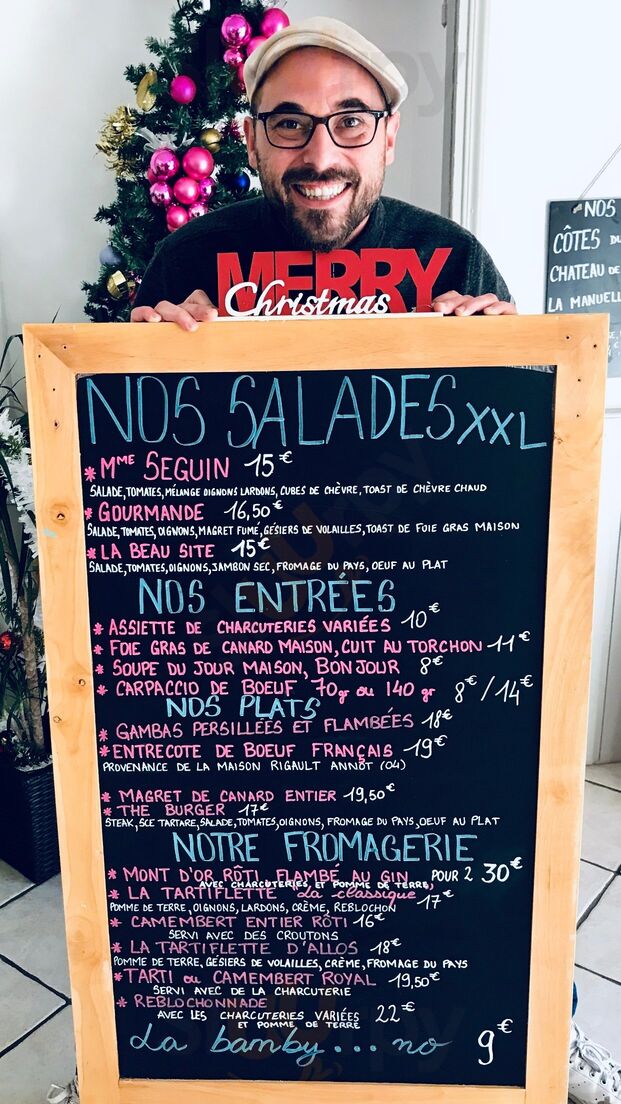 MERRY
Christmas
NOS
CÔTES DU
CHATEAU DE
LA MANUELL
NOS SALADES XXL
* Mme SEGUIN 15€
SALADE, TOMATES, MÉLANGE OIGNONS LARDONS, CUBES DE CHÈVRE, TOAST DE CHÈVRE CHAUD
* GOURMANDE 16,50€
SALADE, TOMATES, OIGNONS, MAGRET FUMÉ, GÉSIERS DE VOLAILLES, TOAST DE FOIE GRAS MAISON
* LA BEAU SITE 15€
SALADE, TOMATES, OIGNONS, JAMBON SEC, FROMAGE DU PAYS, OEUF AU PLAT
NOS ENTRÉES
* ASSIETTE DE CHARCUTERIES VARIÉES 10€
* FOIE GRAS DE CANARD MAISON, CUIT AU TORCHON 11€
* SOUPE DU JOUR MAISON, BONJOUR 8€
* CARPACCIO DE BOEUF 70gr ou 140 gr 8€/14€
NOS PLATS
* GAMBAS PERSILLÉES ET FLAMBÉES 18€
* ENTRECOTE DE BOEUF FRANÇAIS 19€
PROVENANCE DE LA MAISON RIGAULT ANNOT (04)
* MAGRET DE CANARD ENTIER 19,50€
* THE BURGER 17€
STEAK, SCE TARTARE, SALADE, TOMATES, OIGNONS, FROMAGE DU PAYS, OEUF AU PLAT
NOTRE FROMAGERIE
* MONT D'OR RÔTI, FLAMBÉ AU GIN POUR 2 30€
AVEC CHARCUTERIES ET POMME DE TERRE,
* LA TARTIFLETTE "La classique" 17€
POMME DE TERRE, OIGNONS, LARDONS, CRÈME, REBLOCHON
* CAMEMBERT ENTIER RÔTI 16€
SERVI AVEC DES CROUTONS
* LA TARTIFLETTE D'ALLOS 18€
POMME DE TERRE, GÉSIERS DE VOLAILLES, CRÈME, FROMAGE DU PAYS
* TARTI ou CAMEMBERT ROYAL 19,50€
SERVI AVEC DE LA CHARCUTERIE
* REBLOCHONNADE
AVEC LES CHARCUTERIES VARIÉES 22€
ET POMME DE TERRE
La bamby... no 9€